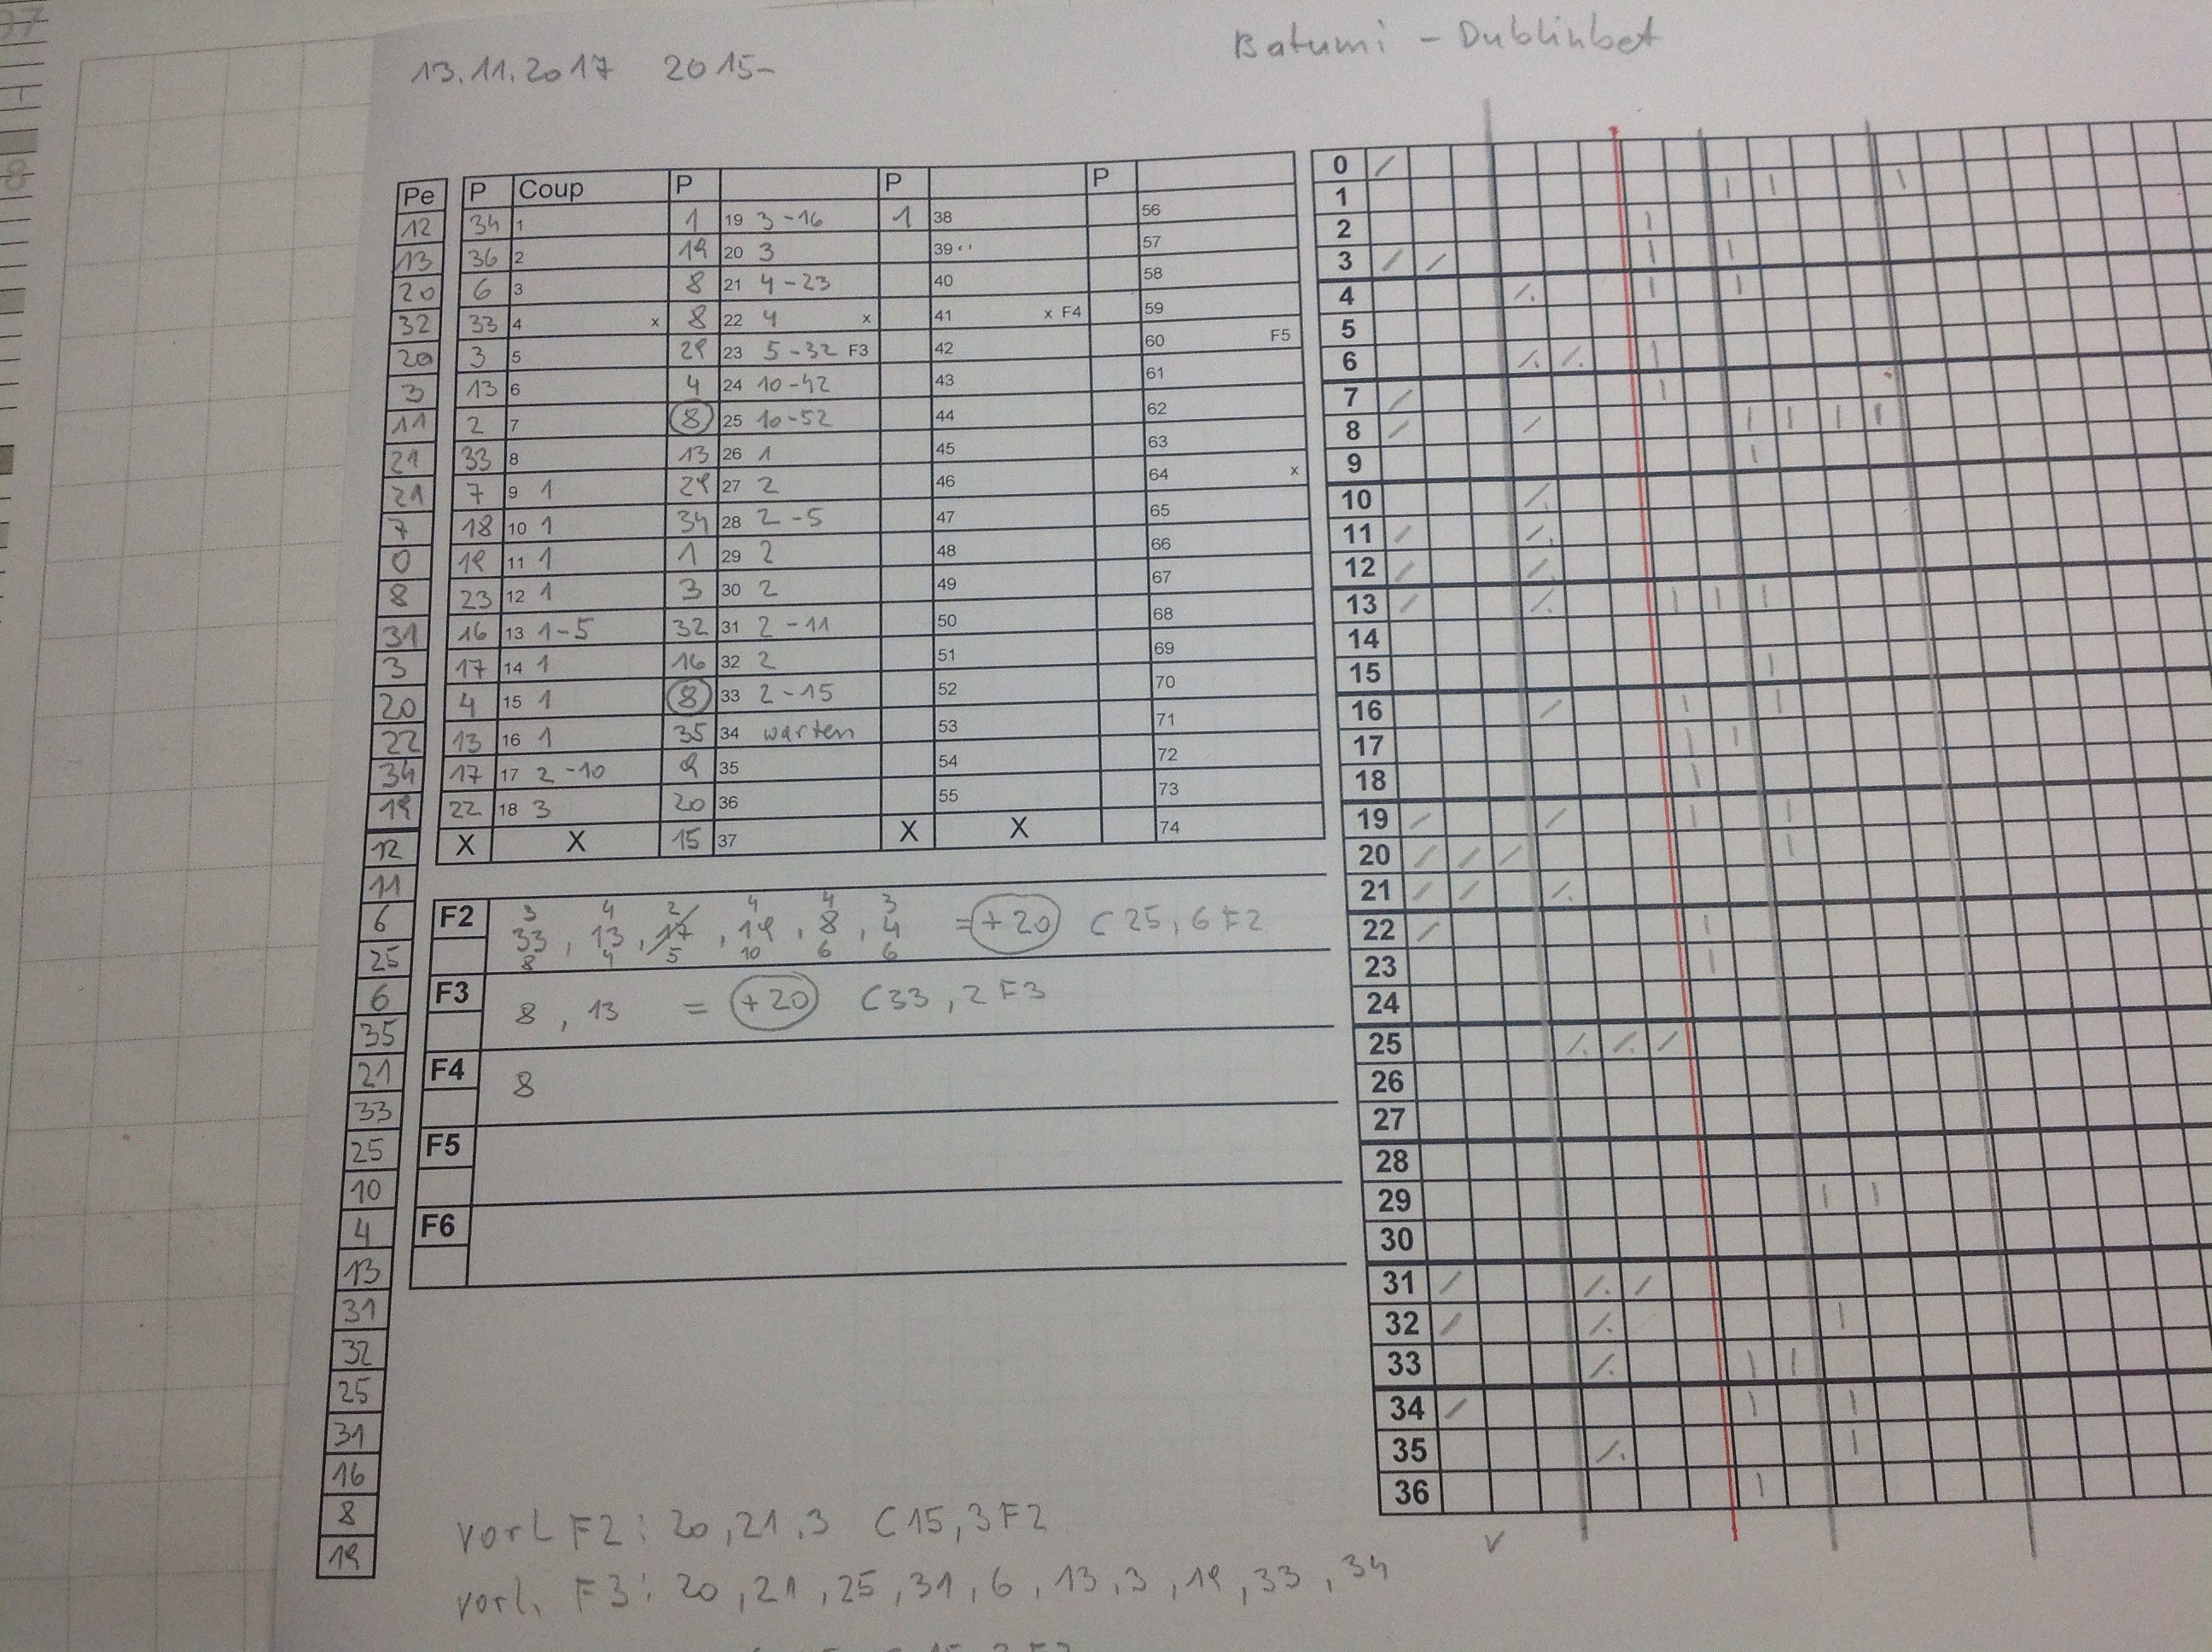 Batumi - Dublinbet
13.11.2017 2015-
Pe P Coup P P P
12 34 1 1 19 3-16 1 38 56
13 36 2 19 20 3 39 57
20 6 3 8 21 4-23 40 58
32 33 4 x 8 22 4 x 41 x F4 59
20 3 5 29 23 5-32 F3 42 60 F5
3 13 6 4 24 10-42 43 61
11 2 7 8 25 10-52 44 62
21 33 8 13 26 1 45 63
21 7 9 1 29 27 2 46 64 x
7 18 10 1 34 28 2-5 47 65
0 19 11 1 1 29 2 48 66
8 23 12 1 3 30 2 49 67
31 16 13 1-5 32 31 2-11 50 68
3 17 14 1 16 32 2 51 69
20 4 15 1 8 33 2-15 52 70
22 13 16 1 35 34 warten 53 71
34 17 17 2-10 9 35 54 72
19 22 18 3 20 36 55 73
12 X X 15 37 X X 74
11
6
25
6
35
21
33
25
10
4
13
31
32
25
31
16
8
19
3 4 2 4 4 3
F2 33, 13, 17, 19, 8, 4 = +20 C25, 6F2
8 4 5 10 6 6
F3 8, 13 = +20 C33, 2F3
F4 8
F5
F6
vorl F2: 20, 21, 3 C15, 3F2
vorl. F3: 20, 21, 25, 31, 6, 13, 3, 19, 33, 34
0
1
2
3
4
5
6
7
8
9
10
11
12
13
14
15
16
17
18
19
20
21
22
23
24
25
26
27
28
29
30
31
32
33
34
35
36
v